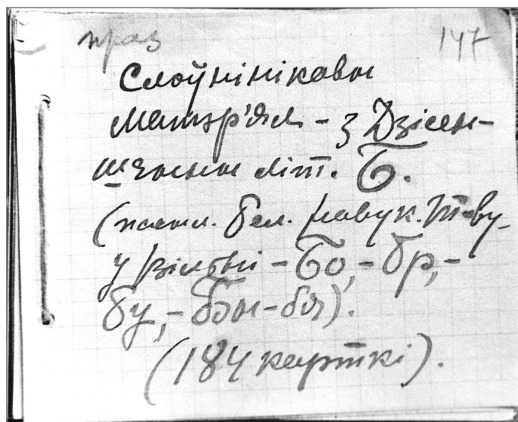 праз 147
Слоўнінікавы
матэр'ял - з Дзісен-
шчыны літ. Б.
(паст. бел. навук. т-ву
у Вільні - Бо, - бр, -
бу, - бы - бя).
(184 карткі).